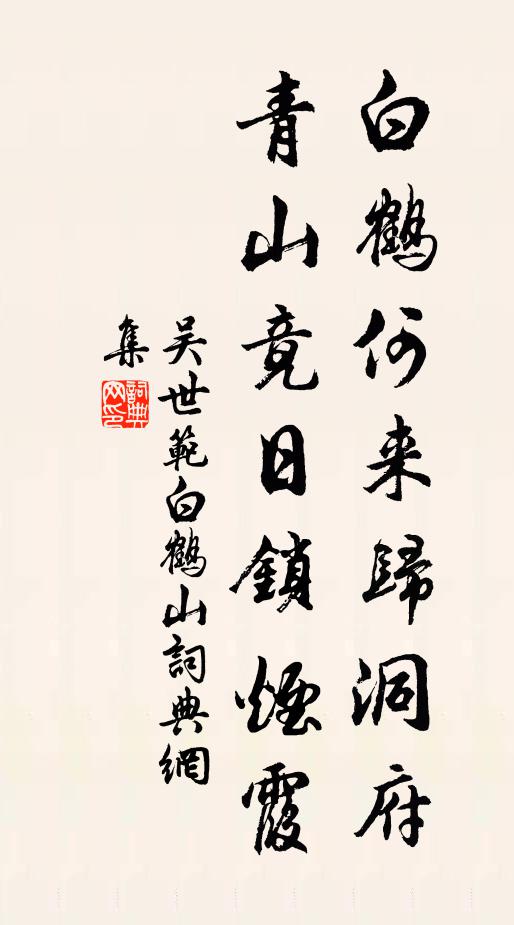 白鶴何来歸洞府
青山竟日鎖煙霞
吴世範白鶴山詞典網
集
詞典網印